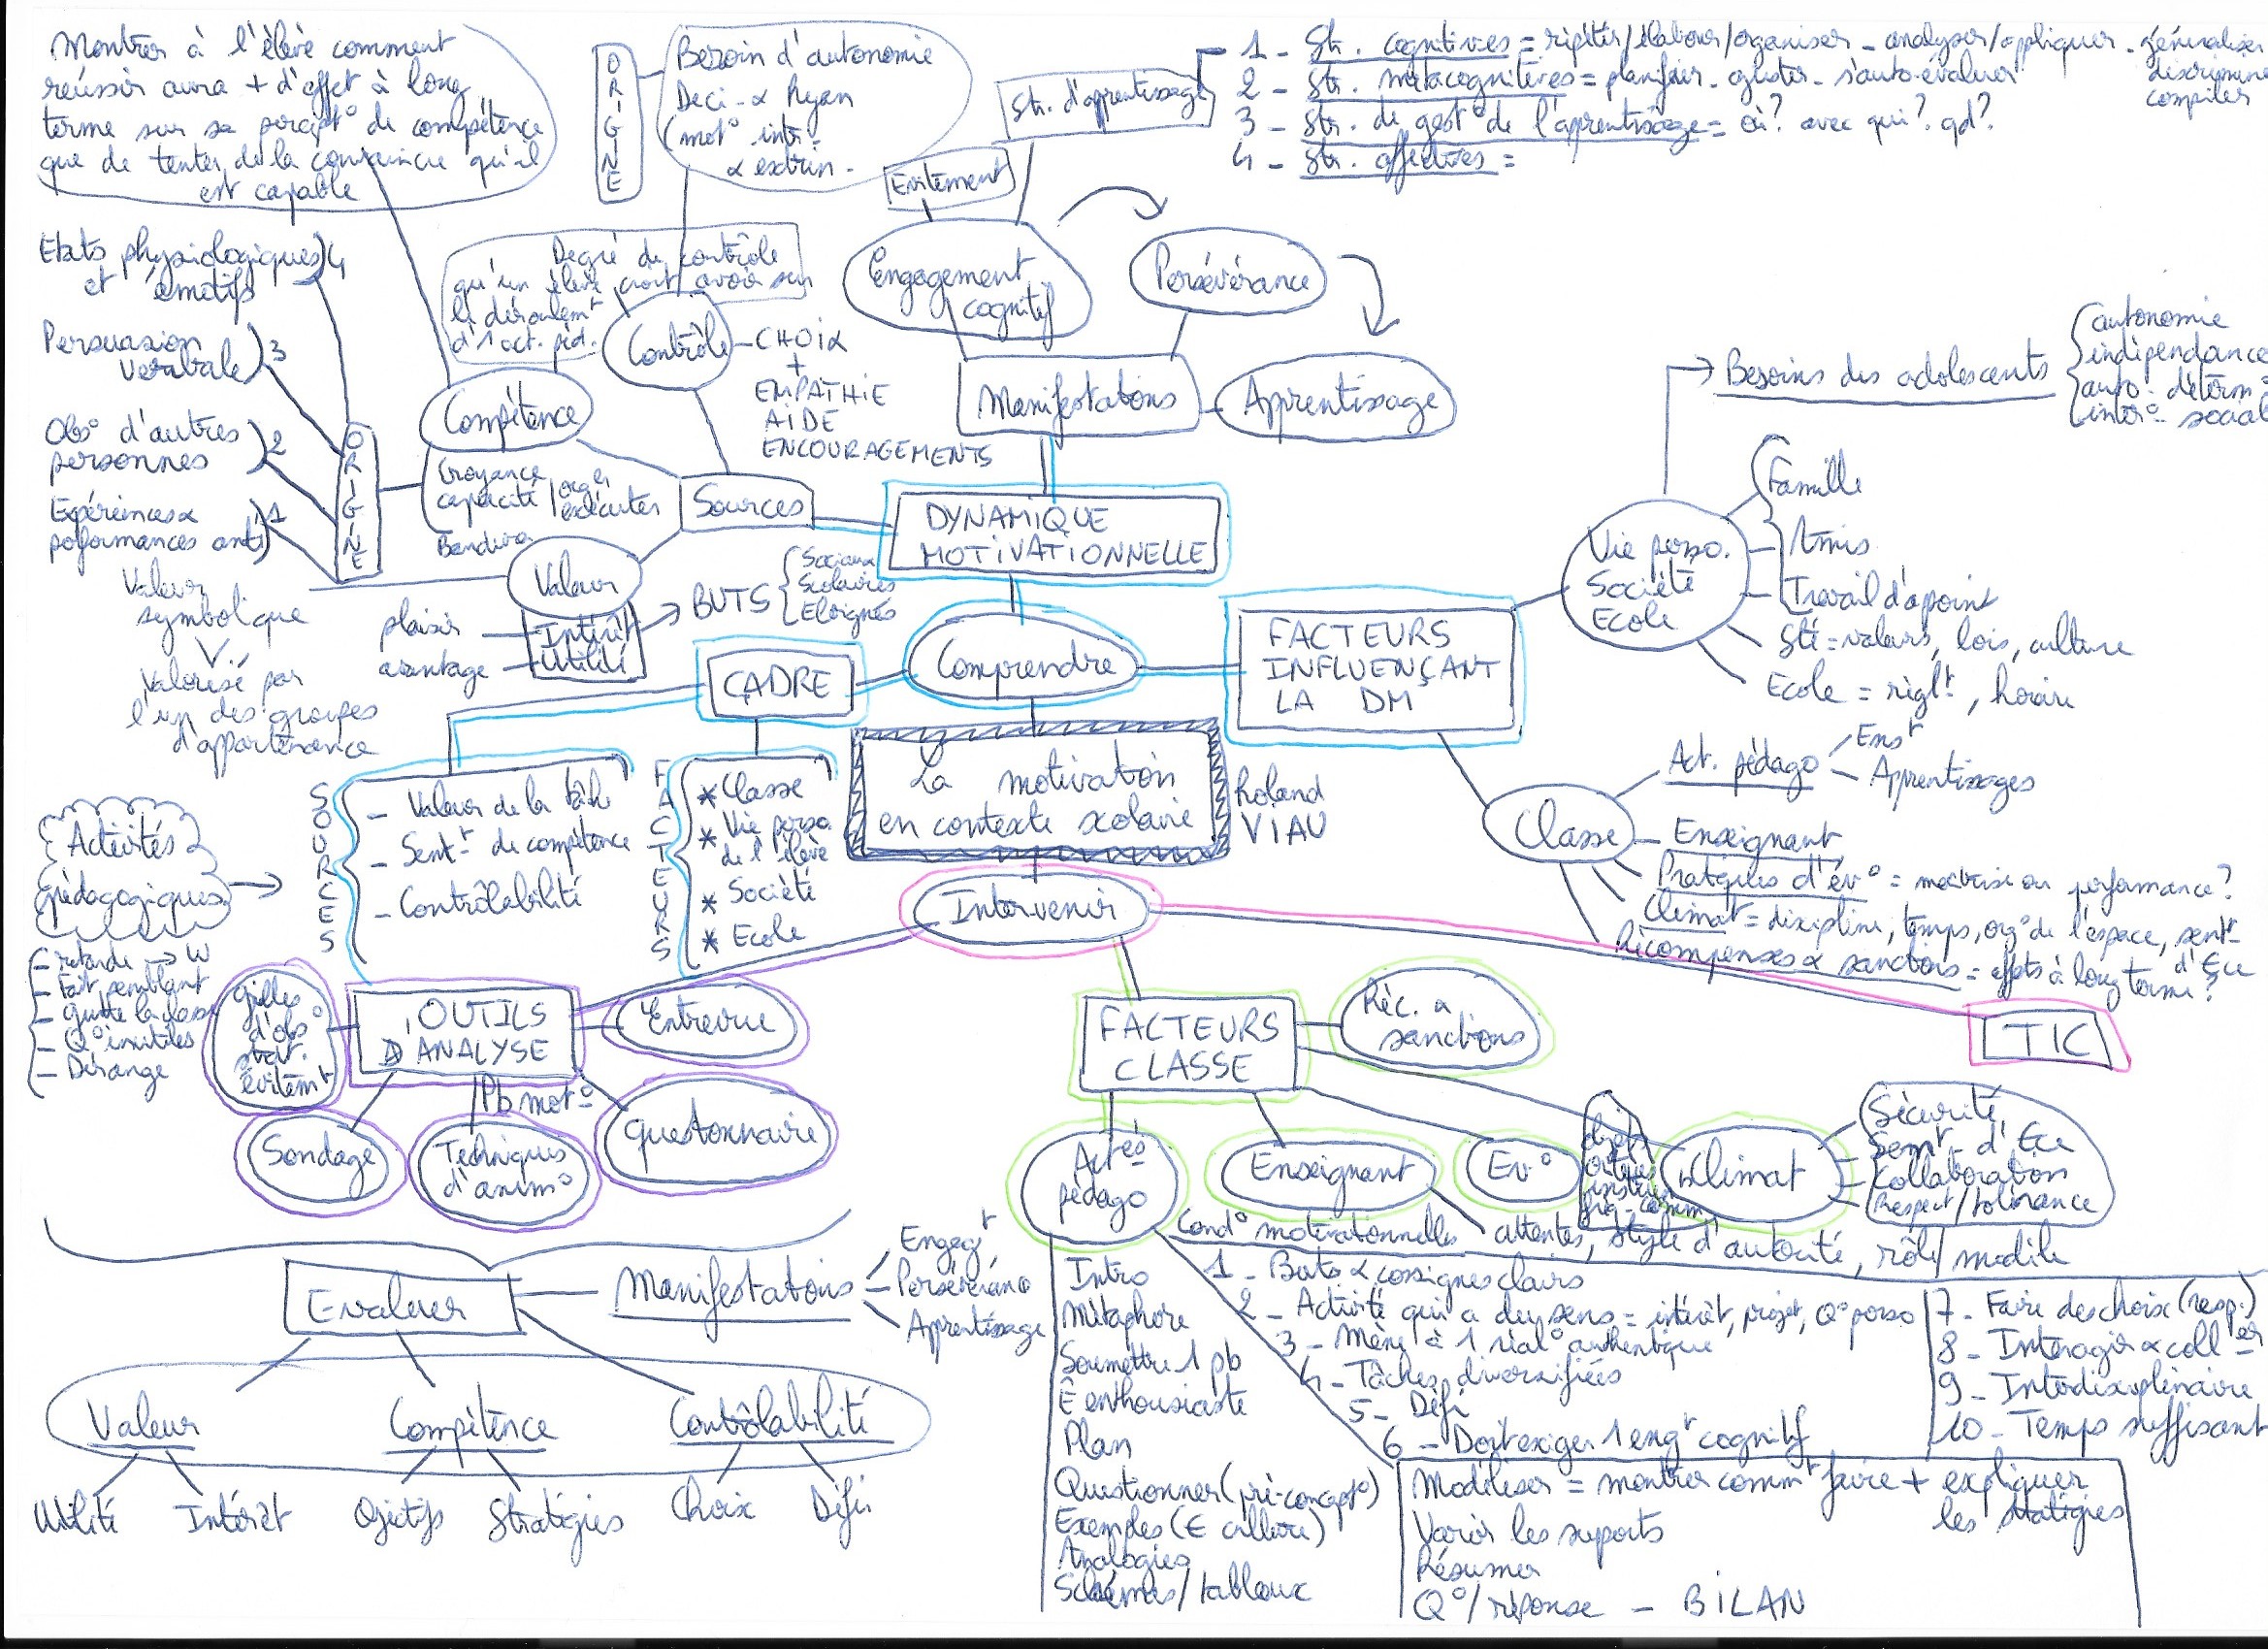 Montrer à l'élève comment
réussir aura + d'effet à long
terme sur sa percept° de compétence
que de tenter de la convaincre qu'il
est capable
ORIGINE
Besoin d'autonomie
Deci - & Ryan
(mot° intr.
& extrin.
Str. d'apprentissage
1 - Str. cognitives = répéter/élaborer/organiser - analyser/appliquer - généraliser
discriminer
compiler
2 - Str. métacognitives = planifier - ajuster - s'auto-évaluer
3 - Str. de gest° de l'apprentissage = où? avec qui? qd?
4 - Str. affectives =
Evitement
Engagement
cognitif
Persévérance
Apprentissage
Manifestations
Etats physiologiques
et émotifs
4
Persuasion
verbale
3
Obs° d'autres
personnes
2
Expériences &
performances ant
1
ORIGINE
Degré de contrôle
qu'un élève croit avoir sur
le déroulemt
d'1 act. péd.
Contrôle
CHOIX
+
EMPATHIE
AIDE
ENCOURAGEMENTS
Compétence
Croyance
capacité / orger
exécuter
Bandura
Sources
DYNAMIQUE
MOTIVATIONNELLE
Valeur
Intérêt
Utilité
plaisir
avantage
BUTS
Sociaux
Scolaires
Eloignés
Valeur
symbolique
Valorisé par
l'un des groupes
d'appartenance
CADRE
Comprendre
FACTEURS
INFLUENÇANT
LA DM
Besoins des adolescents
autonomie
indépendance
auto-déterm°
inter° social
Vie perso.
Société
Ecole
Famille
Amis
Travail d'apoint
Sté = valeurs, lois, culture
Ecole = règlt, horaire
La motivation
en contexte scolaire
Roland
VIAU
SOURCES
- Valeur de la tâche
- Sentt de compétence
- Contrôlabilité
FACTEURS
* Classe
* Vie perso
de l'élève
* Société
* Ecole
Classe
Act. pédago
Enst
Apprentissages
Enseignant
Pratiques d'év° = maîtrise ou performance?
Climat = discipline, temps, org° de l'espace, sentt
d'Ece
Récompenses & sanctions = effets à long terme?
Activités
pédagogiques
- retarde → W
- Fait semblant
- quitte la classe
- Q° inutiles
- Dérange
Intervenir
OUTILS
D'ANALYSE
Grilles
d'obs°
strat.
évitemt
Entrevue
Sondage
Pb mot°
Techniques
d'anim°
Questionnaire
FACTEURS
CLASSE
Réc. &
sanctions
TIC
Actés
pédago
Enseignant
Ev°
objets
critères
instrum
fréq - comm
Climat
Sécurité
Semt d'Ece
Collaboration
Respect/tolérance
attentes, style d'autorité, rôle/modèle
Cond° motivationnelles
1 - Buts & consignes clairs
2 - Activité qui a du sens = intérêt, projet, Q° perso
3 - Mène à 1 réal° authentique
4 - Tâches diversifiées
5 - Défi
6 - Doit exiger 1 engt cognitif
7 - Faire des choix (resp.)
8 - Interagir & coller
9 - Interdisciplinaire
10 - Temps suffisant
Intro
Métaphore
Soumettre 1 pb
Ê enthousiaste
Plan
Questionner (pré-concept°)
Exemples (€ culture)
Analogies
Schémas/tableaux
Modéliser = montrer commt faire + expliquer
les statégies
Varier les suports
Résumer
Q°/réponse - BILAN
Evaluer
Manifestations
Engagt
Persévéranc
Apprentissage
Valeur
Compétence
Contrôlabilité
Utilité
Intérêt
Ojectifs
Stratégies
Choix
Défi